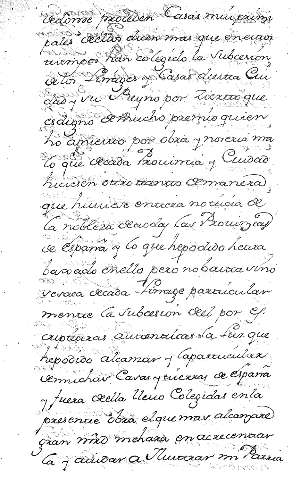 de donde proceden Casas muy prin
pales dellas
tiempos han colegido la Subcesion
de los Linages y Casas de esta Ciu
dad y su Reyno por cierto que
es digno de mucho premio quien
ha
lo que de cada Provincia y Ciudad
hiciesen otro tanto de manera
que huviese entera noticia de
la nobleza de todas las Provinzias
de España y lo que hepodido he tra
baxado en ello pero no basta sino
de cada Linage particular
mente la Subcesion del por es
cripturas autenticas la Luz que
hepodido alcanzar y la particular
de muchas Casas y tierras de españa
y fuera de ella llevo Colegidas en la
presente obra el que mas alcanzare
gran mrd me hara en acrecentar
la y ayudar a Ilustrar mi Patria